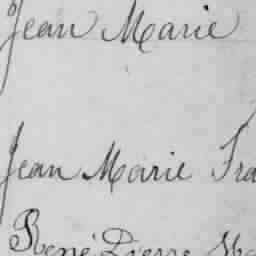 Jean Marie
Jean Marie Fra
René Pierre Ma